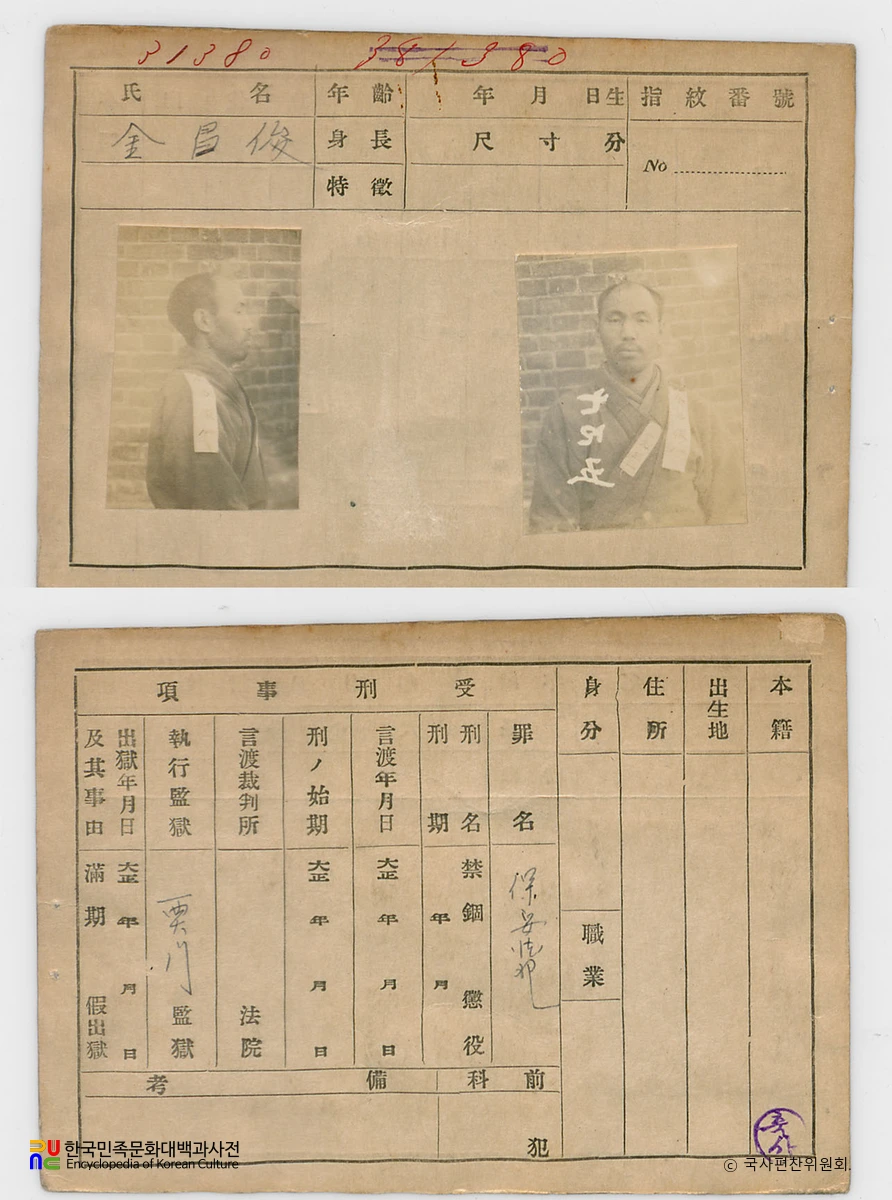 31380
381380
氏名
年齡
年月日生
指紋番號
金昌俊
身長
尺寸分
No
特徵
七七五
本籍
出生地
住所
身分
職業
受刑事項
罪名
保安法犯
刑名
禁錮 懲役
刑期
年 月
言渡年月日
大正 年 月 日
刑ノ始期
大正 年 月 日
言渡裁判所
法院
執行監獄
西大門監獄
出獄年月日
大正 年 月 日
及其事由
滿期 假出獄
前科
犯
備考
한국민족문화대백과사전
Encyclopedia of Korean Culture
© 국사편찬위원회.